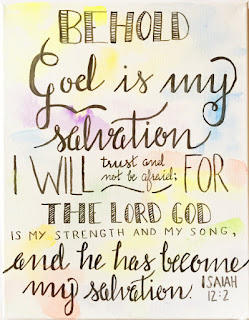 BEHOLD
God is my
salvation
I WILL trust and not be afraid; FOR
THE LORD GOD
IS MY STRENGTH AND MY SONG,
and he has become
my salvation. ISAIAH 12:2